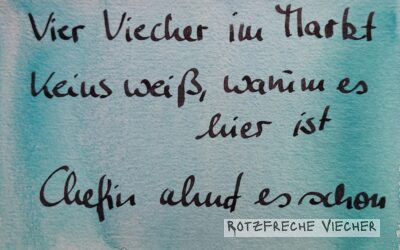 Vier Viecher im Markt
Keins weiß, warum es
hier ist
Chefin ahnd es schon
ROTZFRECHE VIECHER